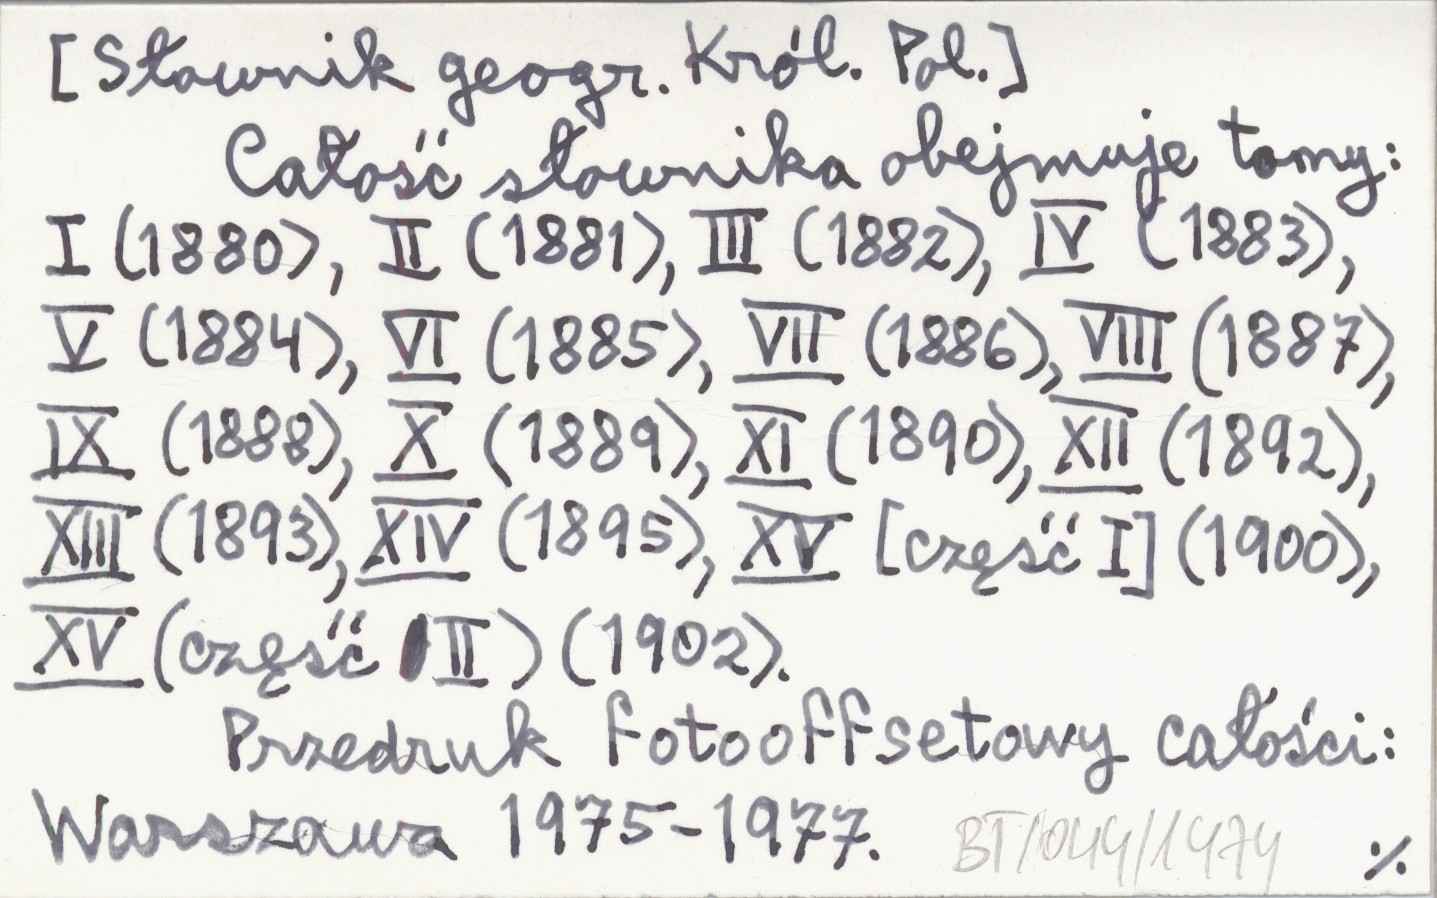 [Słownik geogr. Król. Pol.]
Całość słownika obejmuje tomy:
I (1880), II (1881), III (1882), IV (1883),
V (1884), VI (1885), VII (1886), VIII (1887),
IX (1888), X (1889), XI (1890), XII (1892),
XIII (1893), XIV (1895), XV [część I] (1900),
XV (część II) (1902).
Przedruk fotooffsetowy całości:
Warszawa 1975-1977. BT/044/1474 ./.